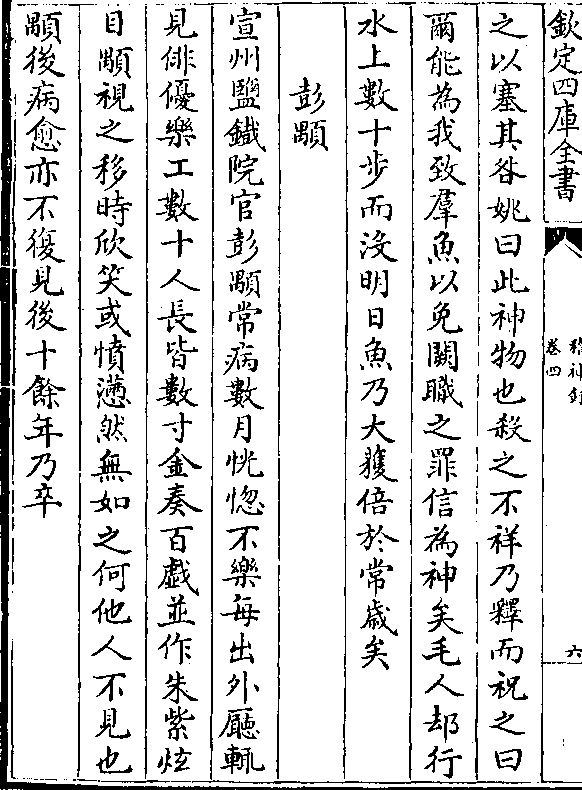 欽定四庫全書
稽神錄
卷四
六
之以塞其咎姚曰此神物也殺之不祥乃釋而祝之曰
爾能為我致羣魚以免闕職之罪信為神矣毛人却行
水上數十步而沒明日魚乃大獲倍於常歲矣
彭顒
宣州鹽鐵院官彭顒常病數月恍惚不樂每出外廳輒
見俳優樂工數十人長皆數寸金奏百戲並作朱紫炫
目顒視之移時欣笑或憤懣然無如之何他人不見也
顒後病愈亦不復見後十餘年乃卒